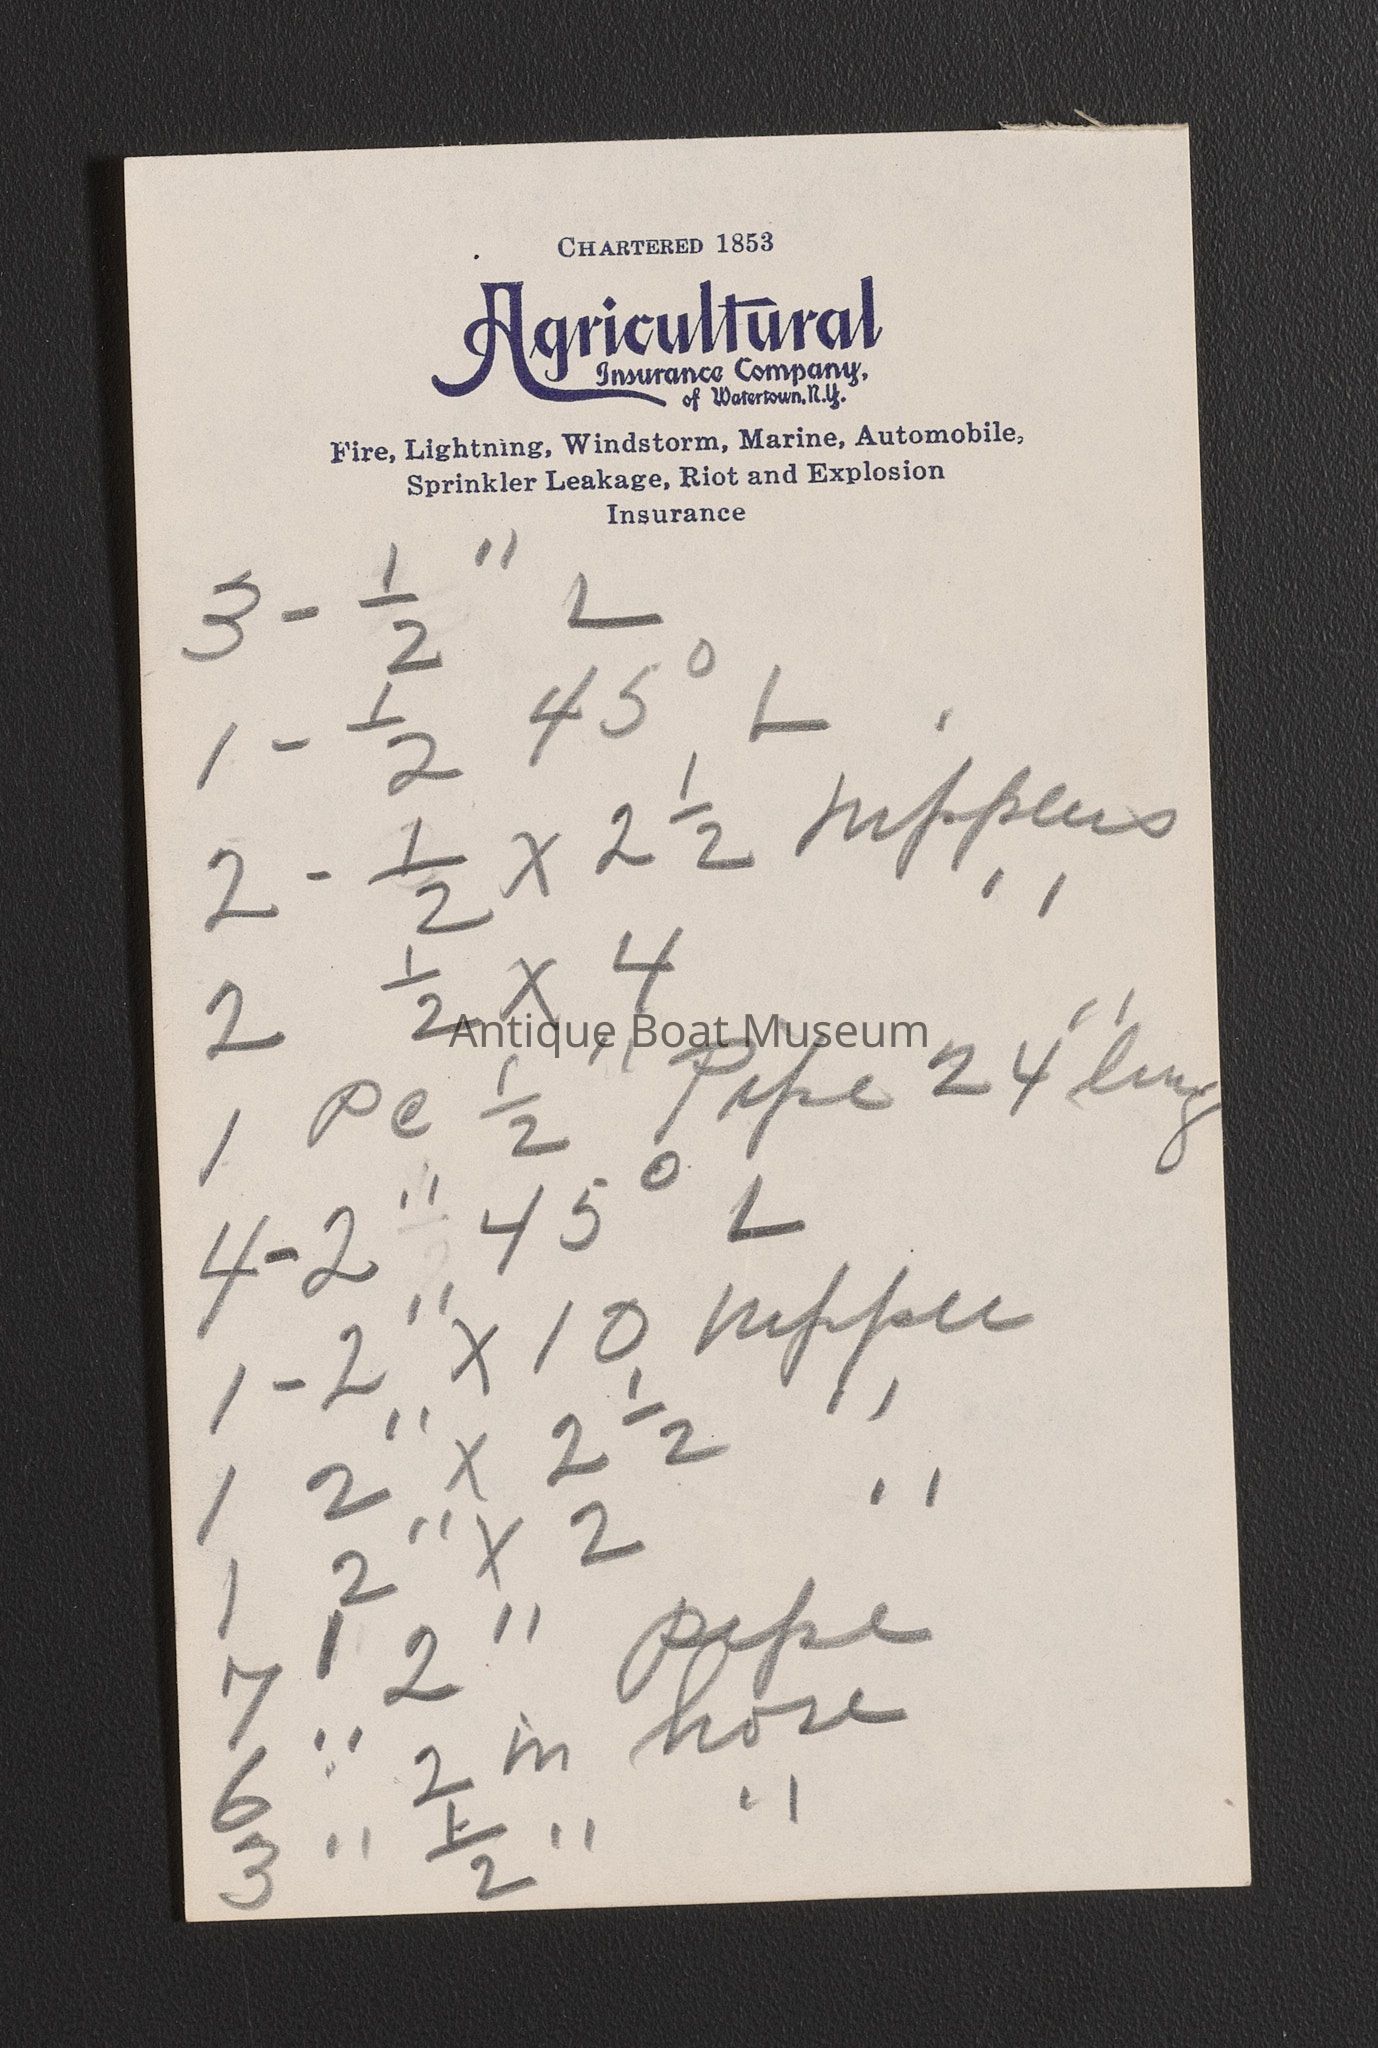 CHARTERED 1853
Agricultural
Insurance Company,
of Watertown, N.Y.
Fire, Lightning, Windstorm, Marine, Automobile,
Sprinkler Leakage, Riot and Explosion
Insurance
3 - 1/2 " L
1 - 1/2 45° L
2 - 1/2 x 2 1/2 nipples
2 1/2 x 4 "
Antique Boat Museum
1 pc 1/2 " Pipe 24" long
4 - 2" 45° L
1 - 2" x 10 nipple
1 2" x 2 1/2 "
1 2" x 2 "
7 ' 2 " pipe
6 " 2 in hose
3 " 1/2 " "